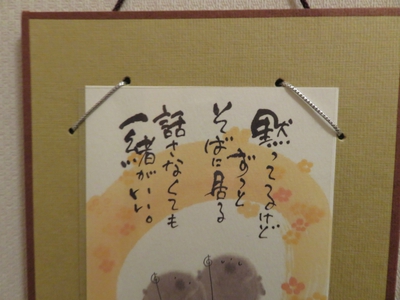 黙ってるけど
ずっと
そばに居る
話さなくても
一緒がいい。